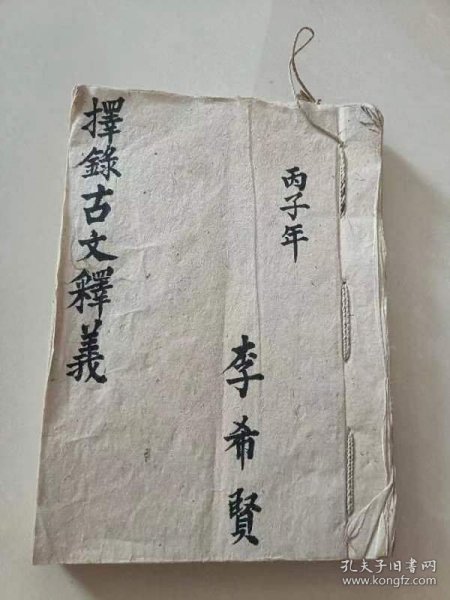 擇錄古文釋義
丙子年
李希賢
孔夫子旧书网
www.kongfz.com